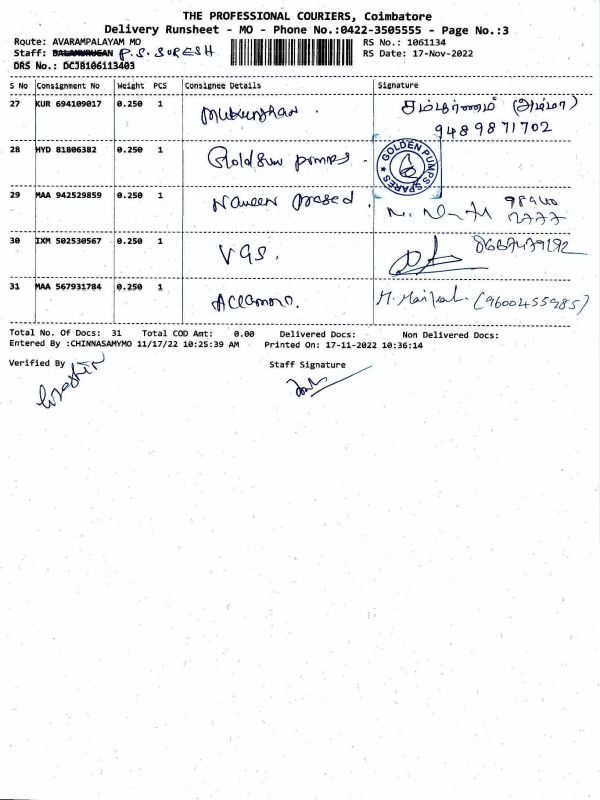 THE PROFESSIONAL COURIERS, Coimbatore
Delivery Runsheet - MO - Phone No.:0422-3505555 - Page No.:3
Route: AVARAMPALAYAM MO RS No.: 1061134
Staff: BALAMURUGAN P.S. SURESH RS Date: 17-Nov-2022
DRS No.: DCJB106113403
S No Consignment No Weight PCS Consignee Details Signature
27 KUR 694109017 0.250 1 (அம்மா)
9489871702
28 HYD 81806382 0.250 1 pumps GOLDEN PUMPS SPARES
29 MAA 942529859 0.250 1 Naveen prased
30 IXM 502530567 0.250 1 VGS.
31 MAA 567931784 0.250 1 (9600455985)
Total No. Of Docs: 31 Total COD Amt: 0.00 Delivered Docs: Non Delivered Docs:
Entered By :CHINNASAMYMO 11/17/22 10:25:39 AM Printed On: 17-11-2022 10:36:14
Verified By Staff Signature